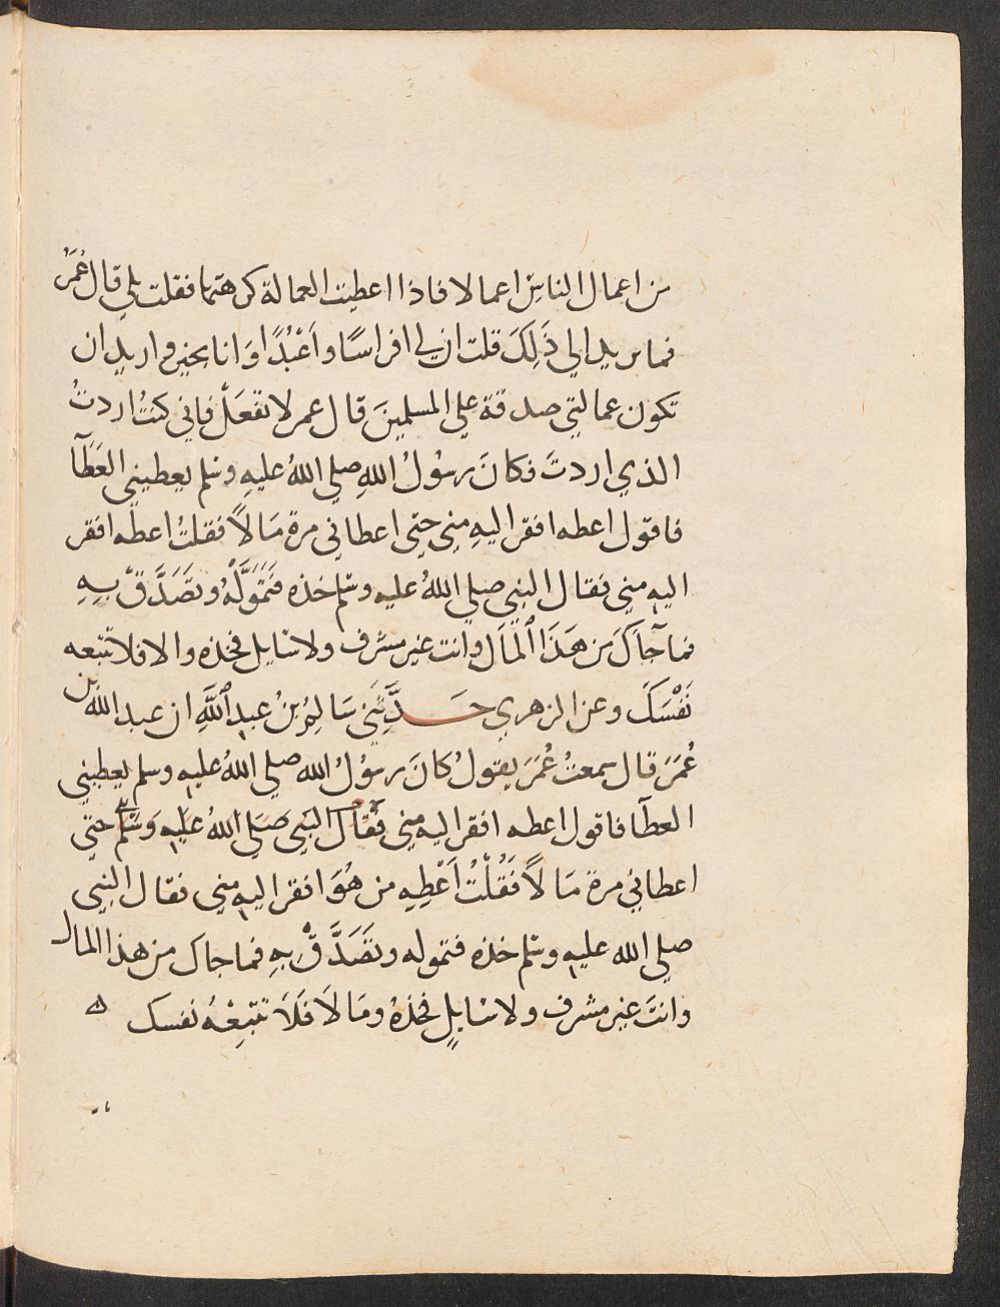 من اعمال الناس اعمالا فاذا اعطيت العمالة كرهتها فقلت بلي قال عُمَرُ
فما تريد الي ذَلِكَ قلت ان لي افراسًا واَعْبُدًا وَانا بخير واريد ان
تكون عمالتي صدقة علي المسلمينَ قال عمر لا تفعَلْ فاني كنتُ اردتُ
الذي اردتَ فكانَ رسُولُ اللهِ صلي اللهُ عليهِ وسلم يعطيني العَطَآ
فاقول اعطه افقر اليهِ مني حتى اعطاني مرة مَالاً فقلتُ اعطه افقر
اليه مني فقال النبي صلي اللهُ عليه وسلم خذه فتَمَوَّلْهُ وتَصَدَّقْ بِهِ
فما جآكَ مَن هَذَا المَال وانت غير مشرف ولا سايل فخذه والا فلا تتبعه
نَفْسَكَ وعن الزهري حَدَّثَنِي سَالِمُ بْنُ عبدِ اللَّهِ ان عبد الله بن
عُمَرَ قال سمعتُ عُمَرَ يقولُ كانَ رسُولُ الله صلي اللهُ عليهِ وسلم يعطيني
العطآ فاقول اعطه افقر اليه مني فقال النبي صَلي اللهُ عَليهِ وَسَلَّم حتي
اعطاني مرة مَالاً فَقُلْتُ أَعْطِهِ من هُوَ افقر اليهِ مني فقال النبي
صلي الله عليهِ وسلم خذه فتموله وتَصَدَّقْ بِهِ فما جاك من هذا المال
وانتَ غير مشرف ولا سَايلٍ فخذهُ ومَا لَا فَلَا تتبِعْهُ نفسك ه